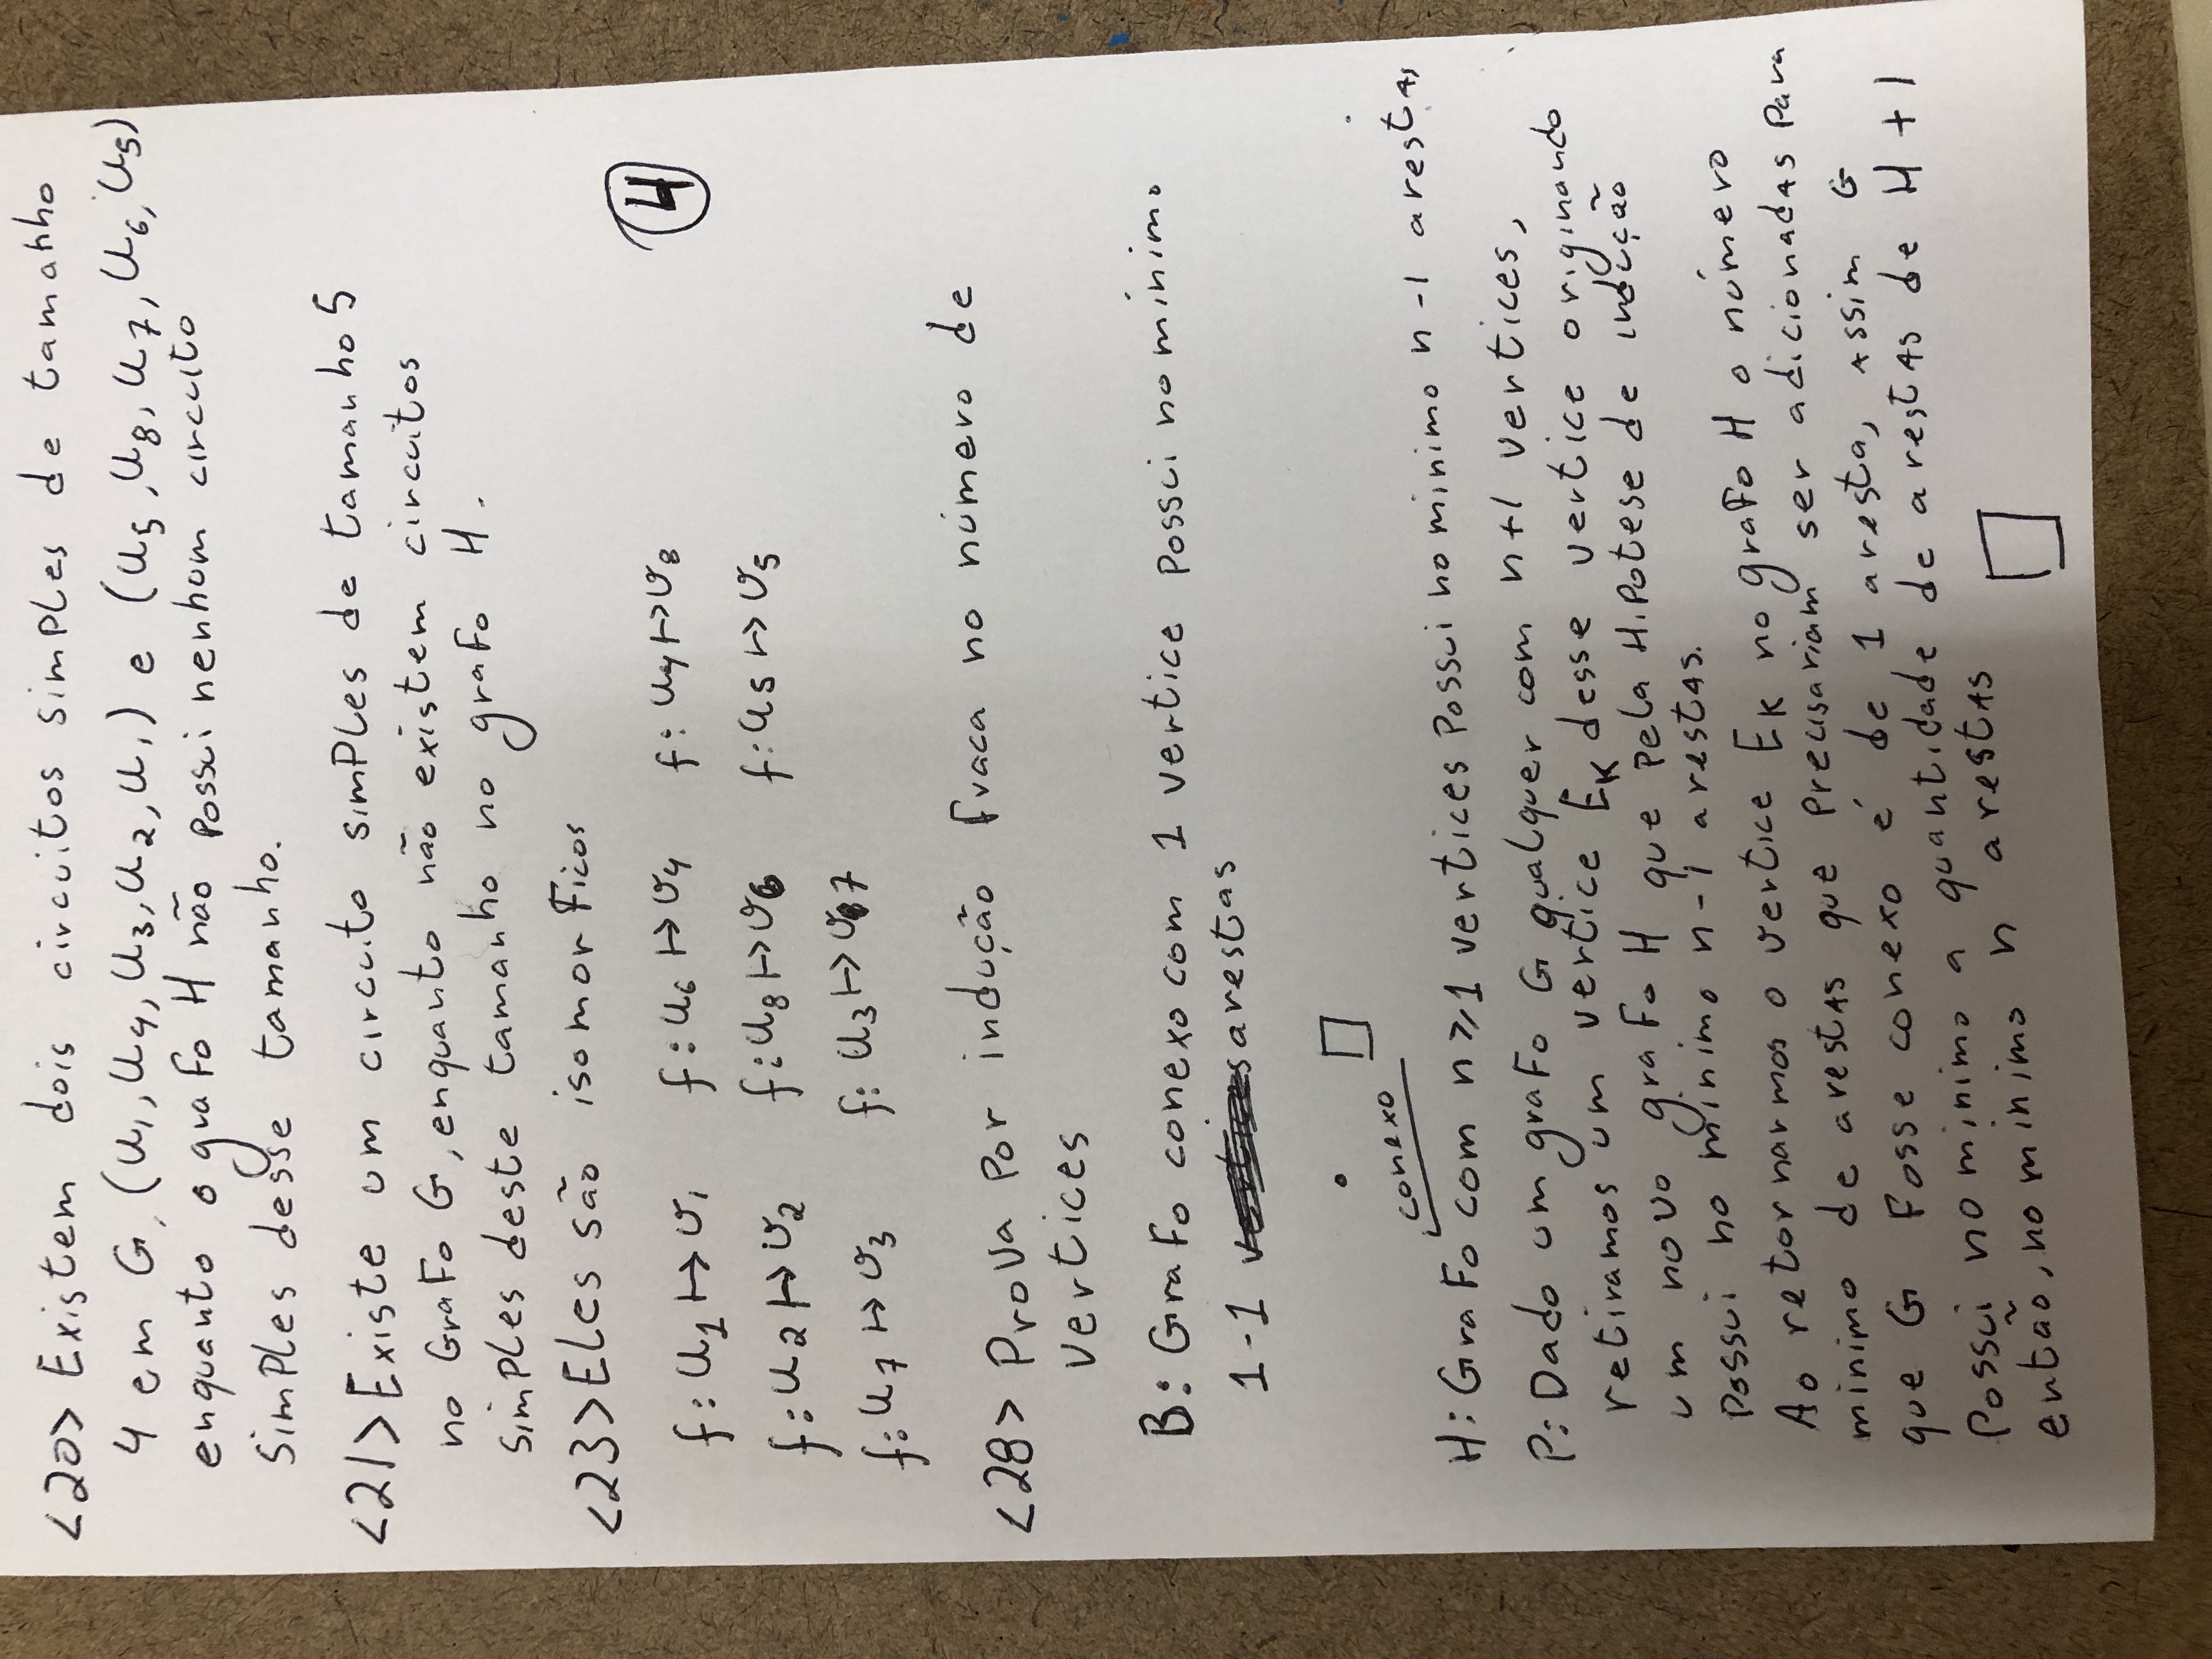 <20> Existem dois circuitos simples de tamanho
4 em G, (u₁, u₄, u₃, u₂, u₁) e (u₅, u₈, u₇, u₆, u₅)
enquanto o grafo H não possui nenhum circuito
simples desse tamanho.
<21> Existe um circuito simples de tamanho 5
no Grafo G, enquanto não existem circuitos
simples deste tamanho no grafo H.
<23> Eles são isomorficos
f: u₁ ↦ v₁ f: u₆ ↦ v₄ f: u₄ ↦ v₈
④
f: u₂ ↦ v₂ f: u₈ ↦ v₆ f: u₅ ↦ v₅
f: u₇ ↦ v₃ f: u₃ ↦ v₇
<28> Prova por indução fraca no número de
vertices
B: Grafo conexo com 1 vertice possui no mínimo
1-1 arestas
• □
conexo
H: Grafo com n ≥ 1 vertices possui no minimo n-1 arestas
P: Dado um grafo G qualquer com n+1 vertices,
retiramos um vertice Eₖ desse vertice originando
um novo grafo H que pela Hipotese de indução
possui no mínimo n-1 arestas.
Ao retornarmos o vertice Eₖ no grafo H o número
minimo de arestas que precisariam ser adicionadas para
que G fosse conexo é de 1 aresta, assim G
possui no minimo a quantidade de arestas de H + 1
então, no minimo n arestas
□